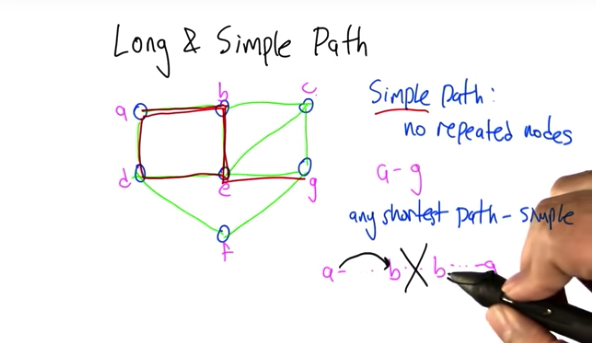 Long & Simple Path
a
b
c
d
e
g
f
Simple path:
no repeated nodes
a-g
any shortest path - simple
a- .. b .. b ... -g